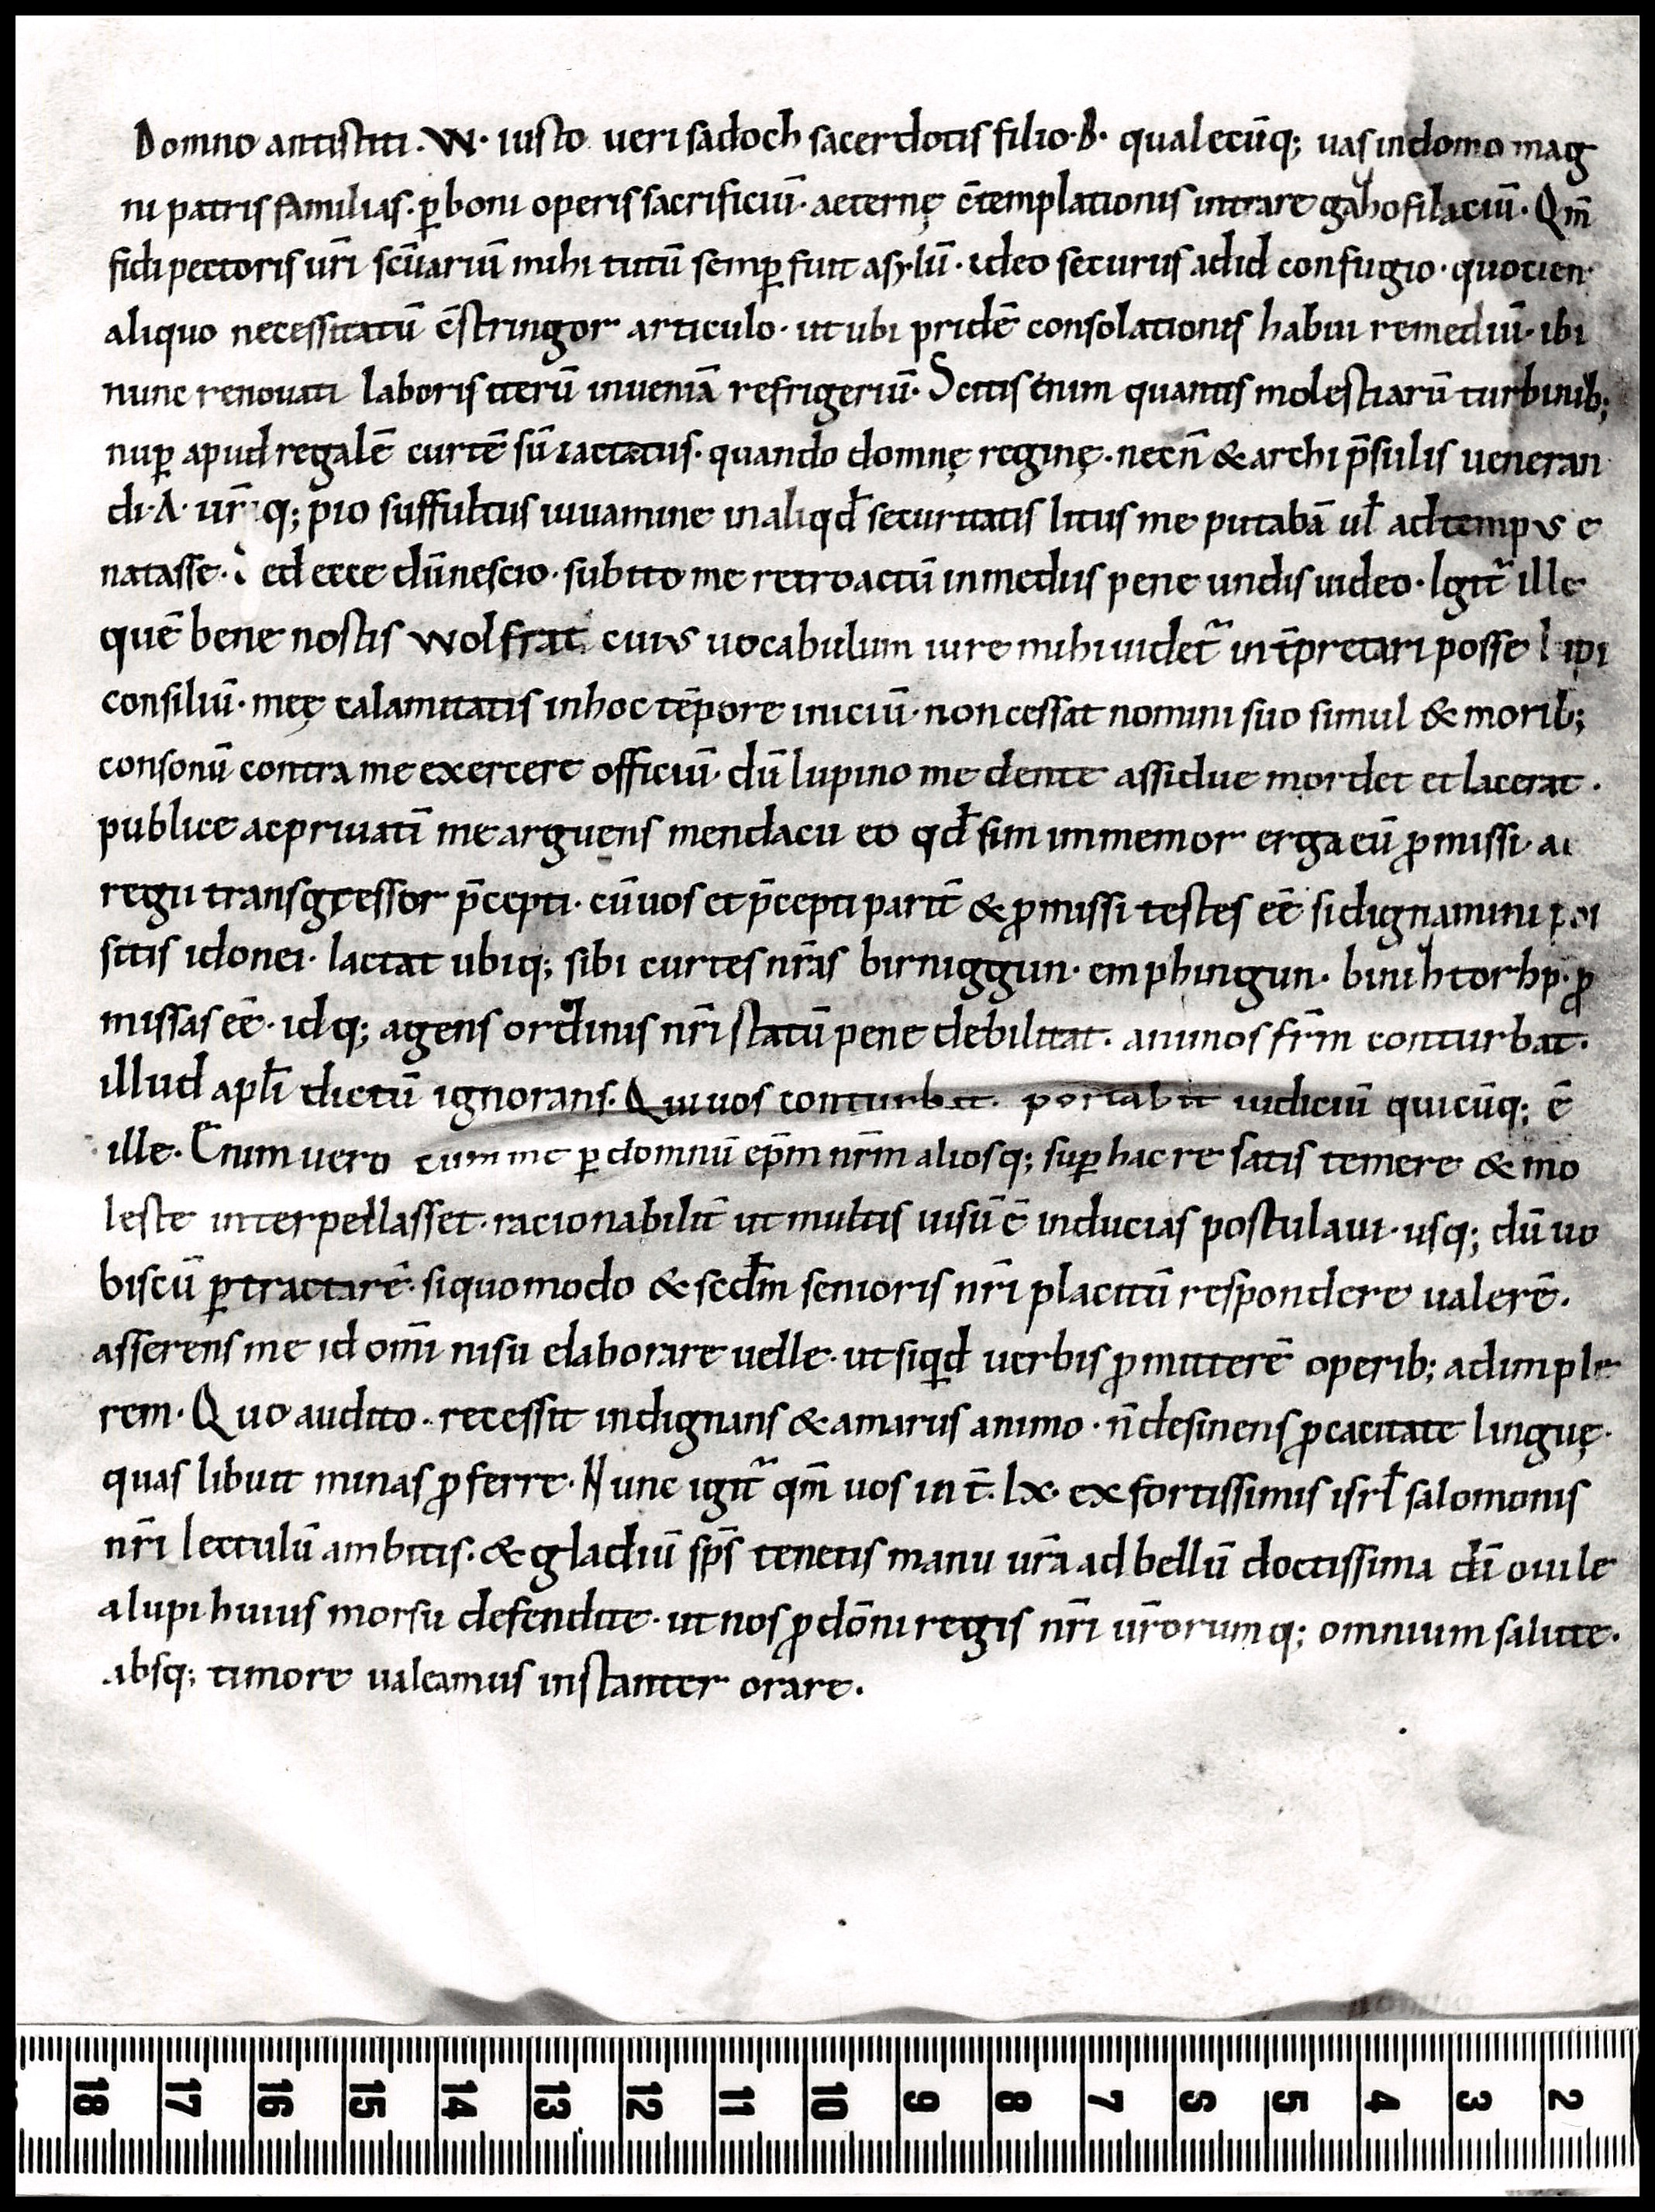 Domno antistiti . W · iusto ueri sadoch sacerdotis filio · B · qualecūq; uas in domo mag
ni patris familias · ꝑ boni operis sacrificiū · aeternę c̄templationis intrare gazhofilaciū · Qm̄
fidi pectoris ur̄i scūariū mihi tutū semꝑ fuit asylū · ideo securus ad id confugio · quotien
aliquo necessitatū c̄stringor articulo · ut ubi pridē consolationis habui remediū · ibi
nunc renouati laboris iterū inueniā refrigeriū · Scitis enim quantis molestiarū turbinib;
nuꝑ apud regalē curtē sū iactatus · quando domnę reginę · necn̄ & archi p̄sulis ueneran
di · A · ur̄ q; pio suffultus iuuamine in aliqđ securitatis litus me putabā uł ad tempus e
natasse · ed ecce dū nescio · subito me retroactū in mediis pene undis uideo · Igit̄ ille
quē bene nostis wolfrat cuius uocabulum iure mihi uidet̄ int̄pretari posse lupi
consiliū · meę calamitatis in hoc tēpore iniciū · non cessat nomini suo simul & morib;
consonū contra me exercere officiū · dū lupino me dente assidue mordet et lacerat ·
publice ac priuatī me arguens mendacii eo qđ sim immemor erga eū ꝓmissi · ac
regii transgressor p̄cepti · cū uos et p̄cepti parit̄ & ꝓmissi testes eē si dignamini pos
sitis idonei · Iactat ubiq; sibi curtes nr̄as birniggun · emphingun · biuihtorhp · ꝓ
missas eē · idq; agens ordinis nr̄i statū pene debilitat · animos fr̄m conturbat ·
illud apłi dictū ignorans · Qui uos conturbat · portabit iudiciū quicūq; ē
ille · Enum uero cum me ꝑ domnū ep̄m nr̄m aliosq; suꝑ hac re satis temere & mo
leste interpellasset · racionabilit̄ ut multis uisū ē inducias postulaui · usq; dū uo
biscū ꝑtractarē · si quomodo & scđm senioris nr̄i placitū respondere valerē ·
asserens me id om̄i nisu elaborare uelle · ut siqđ uerbis ꝓmitterē operib; adimple
rem · Quo audito · recessit indignans & amarus animo · n̄ desinens ꝓcacitate linguę ·
quas libuit minas ꝓferre · Nunc igit̄ qm̄ uos int̄ · lx · ex fortissimis isrł salomonis
nr̄i lectulū ambitis · & gladiū sp̄s tenetis manu ur̄a ad bellū doctissima dī ouile
a lupi huius morsu defendite · ut nos ꝓ dōni regis nr̄i ur̄orumq; omnium salute ·
absq; timore ualeamus instanter orare ·
18 17 16 15 14 13 12 11 10 9 8 7 6 5 4 3 2